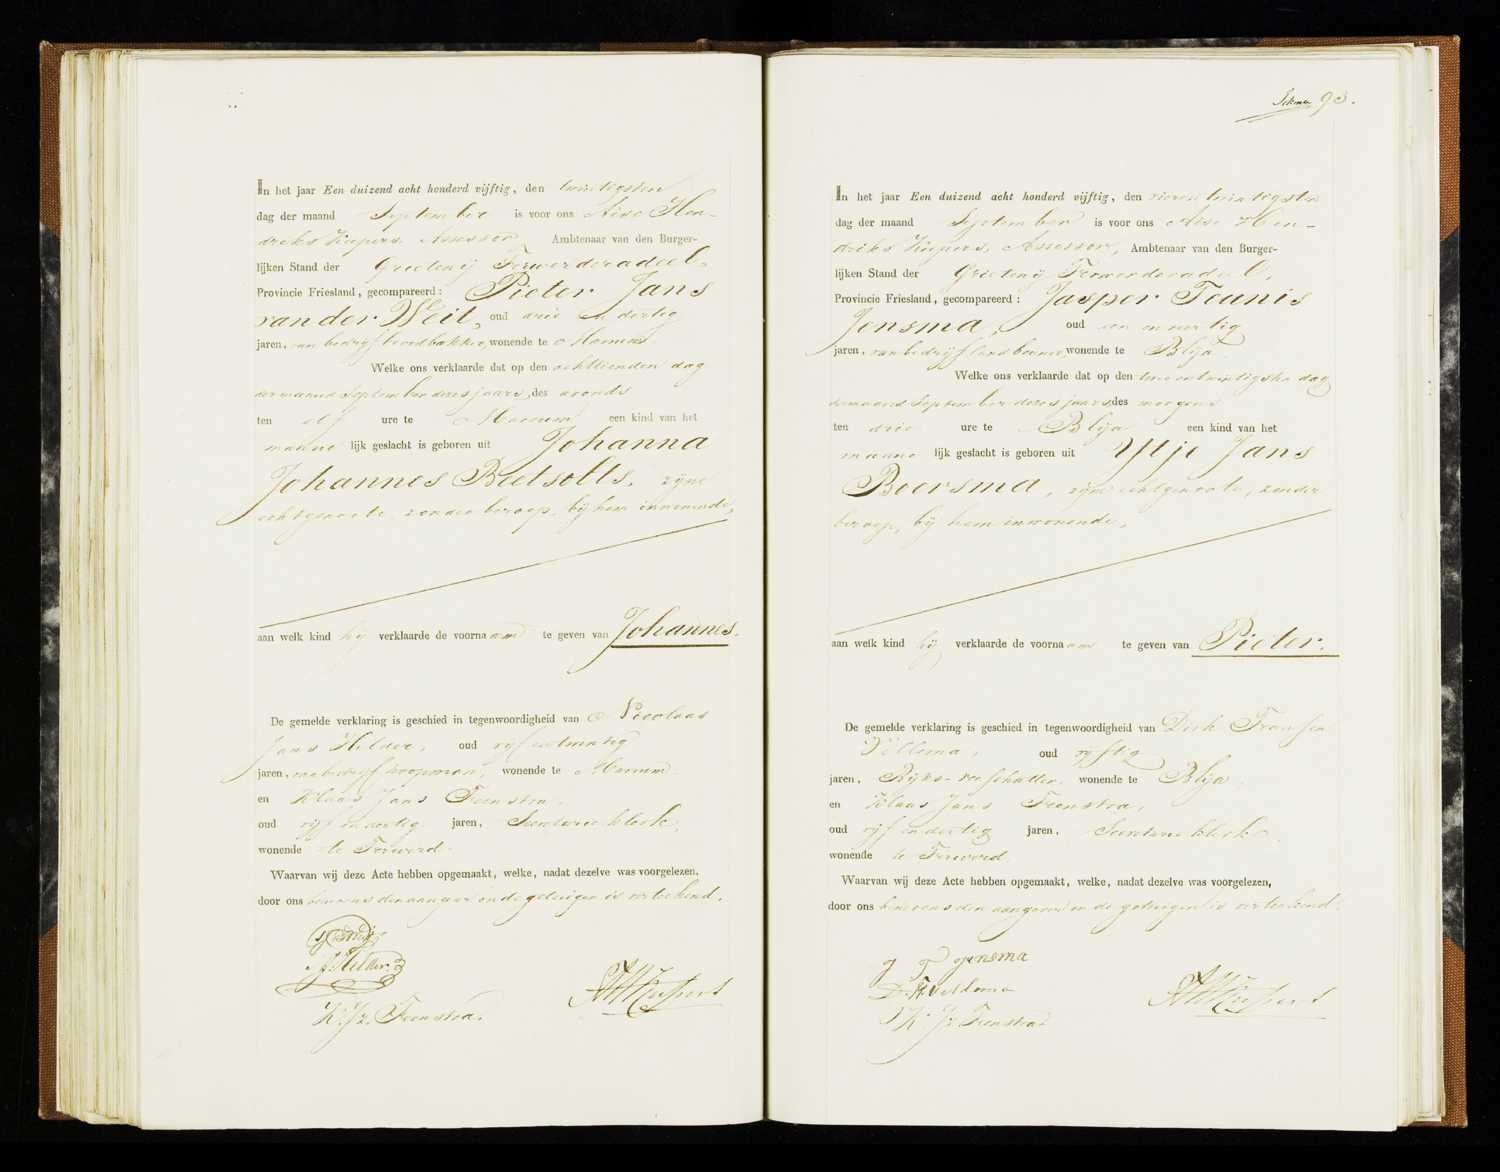 In het jaar Een duizend acht honderd vijftig, den twintigsten
dag der maand September is voor ons Aise Hen-
driks Kuipers, Assessor, Ambtenaar van den Burger-
lijken Stand der Grietenij Ferwerderadeel,
Provincie Friesland, gecompareerd: Pieter Jans
van der Weit, oud drie en dertig
jaren, van bedrijf broodbakker, wonende te Marrum
Welke ons verklaarde dat op den achttienden dag
der maand September dezes jaars, des avonds
ten elf ure te Marrum een kind van het
manne lijk geslacht is geboren uit Johanna
Johannes Beetsolts, zijne
echtgenoote, zonder beroep, bij hem inwonende,
aan welk kind hij verklaarde de voornaam te geven van Johannes.
De gemelde verklaring is geschied in tegenwoordigheid van Nicolaas
Jans Helder, oud vijf en twintig
jaren, van bedrijf koopman, wonende te Marrum
en Klaas Jans Feenstra,
oud vijf en dertig jaren, Secretarie klerk,
wonende te Ferwerd.
Waarvan wij deze Acte hebben opgemaakt, welke, nadat dezelve was voorgelezen,
door ons benevens den aangever en de getuigen is verteekend.
N. Helder
K. Jz. Feenstra.
AHKuipers
93.
In het jaar Een duizend acht honderd vijftig, den vierentwintigste
dag der maand September is voor ons Aise Hen-
driks Kuipers, Assessor, Ambtenaar van den Burger-
lijken Stand der Grietenij Ferwerderadeel,
Provincie Friesland, gecompareerd: Jasper Teunis
Jensma, oud een en veertig
jaren, van bedrijf landbouwer, wonende te Blija.
Welke ons verklaarde dat op den tweeentwintigsten dag
der maand September dezes jaars, des morgens
ten drie ure te Blija een kind van het
manne lijk geslacht is geboren uit Ytje Jans
Boersma, zijne echtgenoote, zonder
beroep, bij hem inwonende,
aan welk kind hij verklaarde de voornaam te geven van Pieter.
De gemelde verklaring is geschied in tegenwoordigheid van Dirk Fransen
Veldema, oud vijftig
jaren, Rijks-verschatter wonende te Blija,
en Klaas Jans Feenstra,
oud vijf en dertig jaren, Secretarie klerk
wonende te Ferwerd.
Waarvan wij deze Acte hebben opgemaakt, welke, nadat dezelve was voorgelezen,
door ons benevens den aangever en de getuigen is verteekend.
J T Jensma
D. F. Veldema
K. Jz Feenstra.
AHKuipers